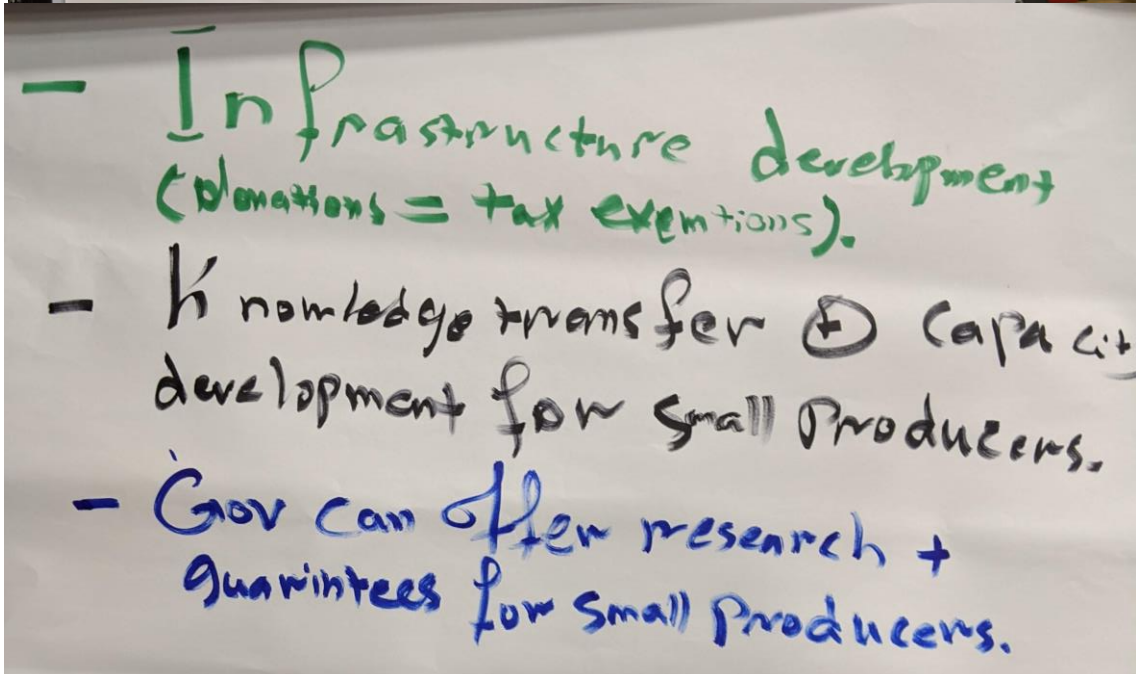 - Infrastructure development
(donations = tax exemtions).
- Knowledge transfer ⊕ Capacit
development for small Producers.
- Gov can offer research +
guarintees for small producers.